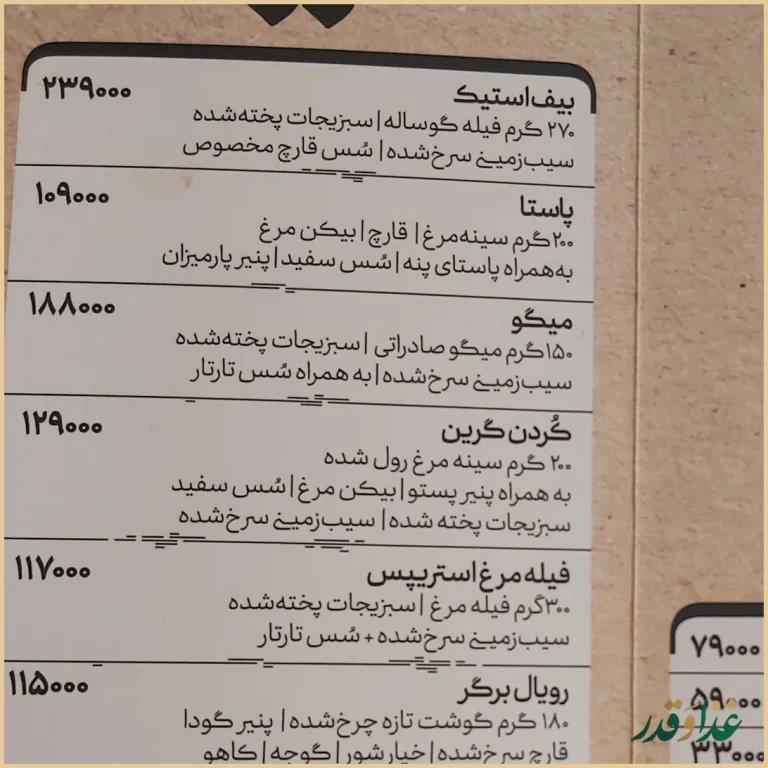 بیف‌استیک ۲۳۹۰۰۰
۲۷۰ گرم فیله گوساله | سبزیجات پخته‌شده
سیب‌زمینی سرخ‌شده | سُس قارچ مخصوص
پاستا ۱۰۹۰۰۰
۲۰۰ گرم سینه‌مرغ | قارچ | بیکن مرغ
به‌همراه پاستای پنه | سُس سفید | پنیر پارمیزان
میگو ۱۸۸۰۰۰
۱۵۰ گرم میگو صادراتی | سبزیجات پخته‌شده
سیب‌زمینی سرخ‌شده | به همراه سُس تارتار
کُردن گرین ۱۲۹۰۰۰
۲۰۰ گرم سینه مرغ رول شده
به همراه پنیر پستو | بیکن مرغ | سُس سفید
سبزیجات پخته شده | سیب‌زمینی سرخ‌شده
فیله مرغ استریپس ۱۱۷۰۰۰
۳۰۰ گرم فیله مرغ | سبزیجات پخته‌شده
سیب‌زمینی سرخ‌شده + سُس تارتار
رویال برگر ۱۱۵۰۰۰
۱۸۰ گرم گوشت تازه چرخ‌شده | پنیر گودا
قارچ سرخ‌شده | خیارشور | گوجه | کاهو
۷۹۰۰۰
۵۹۰۰۰
۳۳۰۰۰
غذا و قدر